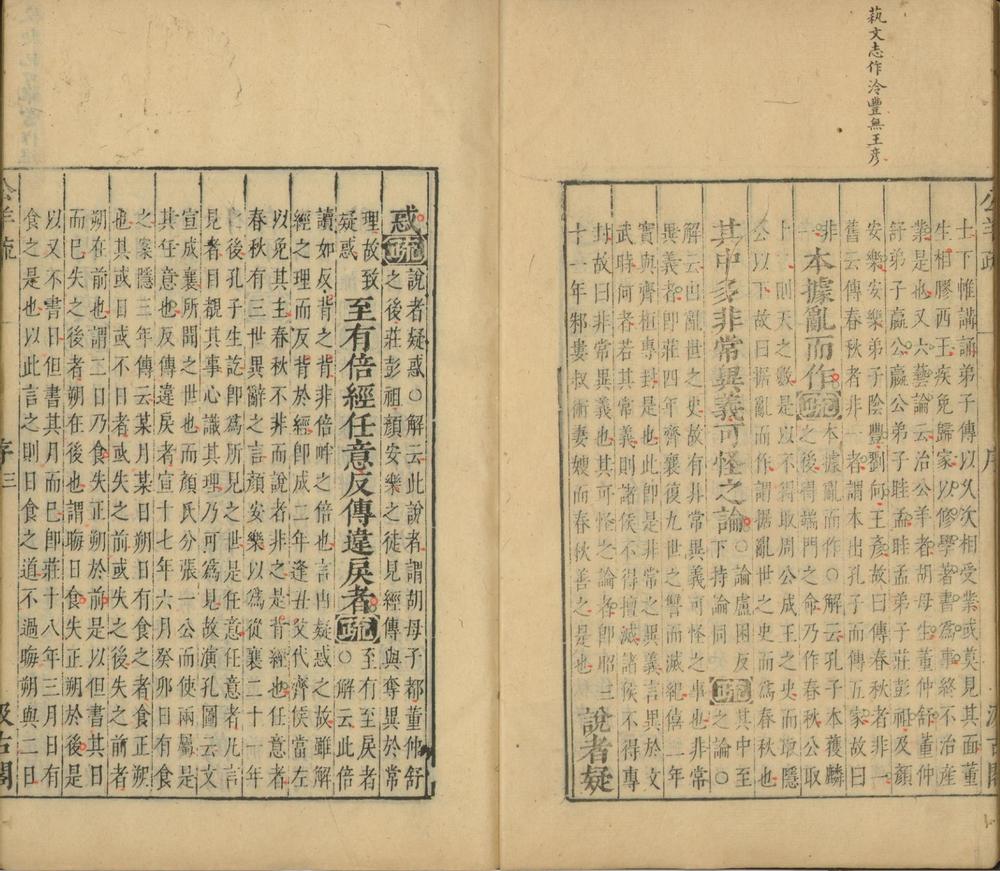 蓺文志作泠豐無王彥
公羊疏 序 汲古閣
士下帷講誦弟子傳以久次相受業或莫見其面董
生相膠西王疾免歸家以修學著書爲事終不治產
業是也又六藝論云治公羊者胡母生董仲舒董仲
舒弟子嬴公嬴公弟子眭孟眭孟弟子莊彭祖及顏
安樂安樂弟子陰豐劉向王彥故曰傳春秋者非一
舊云傳春秋者非一者謂本出孔子而傳五家故曰
非一 本據亂而作 疏 本據亂而作○解云孔子本獲麟之後得端門之命乃作春秋公取
十二則天之數是以不得取周公成王之史而取隱
公以下故曰据亂而作謂据亂世之史而爲春秋也
其中多非常異義可怪之論 ○論盧困反下持論同 疏 其中至之論○
解云由亂世之史故有非常異義可怪之事也非常
異義者即莊四年齊襄復九世之讐而滅紀僖二年
實與齊桓專封是也此即是非常之異義言異於文
武時何者若其常義則諸侯不得擅滅諸侯不得專
封故曰非常異義也其可怪之論者即昭三
十一年邾婁叔術妻嫂而春秋善之是也 說者疑
惑 疏 說者疑惑○解云此說者謂胡母子都董仲舒
之後莊彭祖顏安樂之徒見經傳與奪異於常
理故致疑惑 至有倍經任意反傳違戾者 疏 至有至戾者○解云此倍
讀如反背之背非倍畔之倍也言由疑惑之故雖解
經之理而反背於經即成二年逢丑父代齊侯當左
以免其主春秋不非而說者非之是背經也任意者
春秋有三世異辭之言顏安樂以爲從襄二十一年
之後孔子生訖即爲所見之世是任意任意者凡言
見者目覩其事心識其理乃可爲見故演孔圖云文
宣成襄所聞之世也而顏氏分張一公而使兩屬是
其任意也反傳違戾者宣十七年六月癸卯日有食
之案隱三年傳云某月某日朔日有食之者食正朔
也其或日或不日者或失之前或失之後失之前者
朔在前也謂二日乃食失正朔於前是以但書其日
而已失之後者朔在後也謂晦日食失正朔於後是
以又不書日但書其月而已即莊十八年三月日有
食之是也以此言之則日食之道不過晦朔與二日
公羊疏 序 三 汲古閣